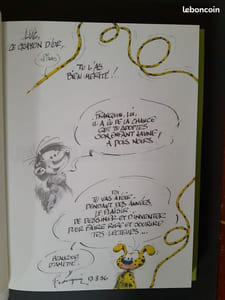 leboncoin
LUC,
CE CRAYON D'OR,
TU L'AS
BIEN MÉRITÉ !!
FRANQUIN, LUI,
IL A EU DE LA CHANCE
QUE TU ADOPTES
JAUNE !
À POIS NOIRS.
TOI..
TU VAS AVOIR
PENDANT DES ANNÉES,
LE PLAISIR
DE DESSINER ET D'INVENTER
POUR FAIRE RIRE ET SOURIRE
TES LECTEURS...
BEAUCOUP
D'AMITIÉ.